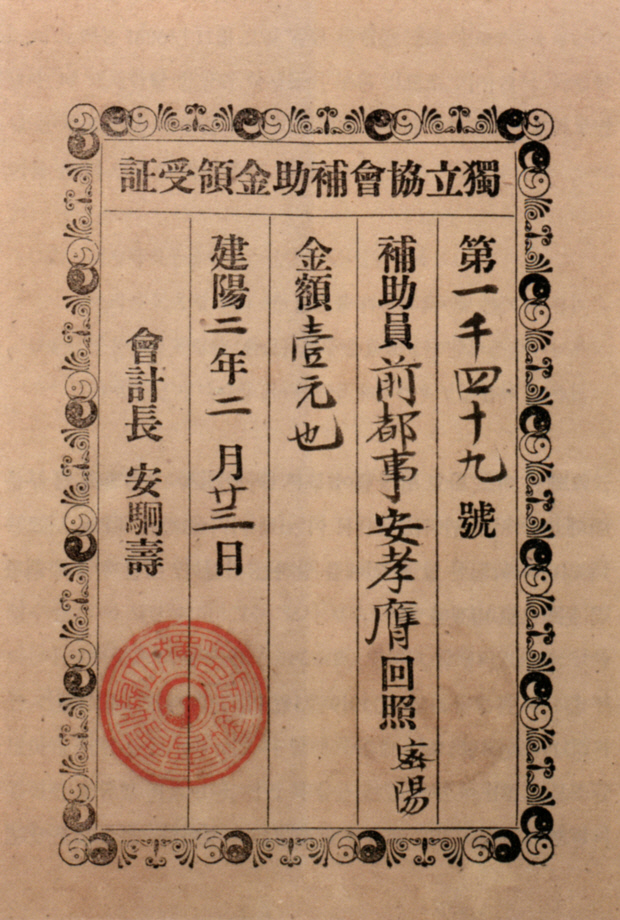 獨立協會補助金領受証
第一千四十九號
補助員前都事安孝膺回照 密陽
金額壹元也
建陽二年二月廿三日
會計長 安駉壽